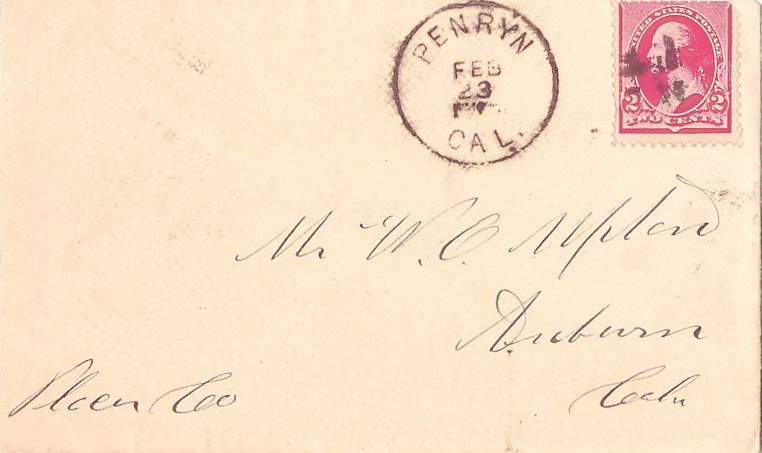 PENRYN
FEB
23
CAL.
UNITED STATES POSTAGE
2 2
TWO CENTS
Mr W. C. Upton
Auburn
Placer Co
Cala